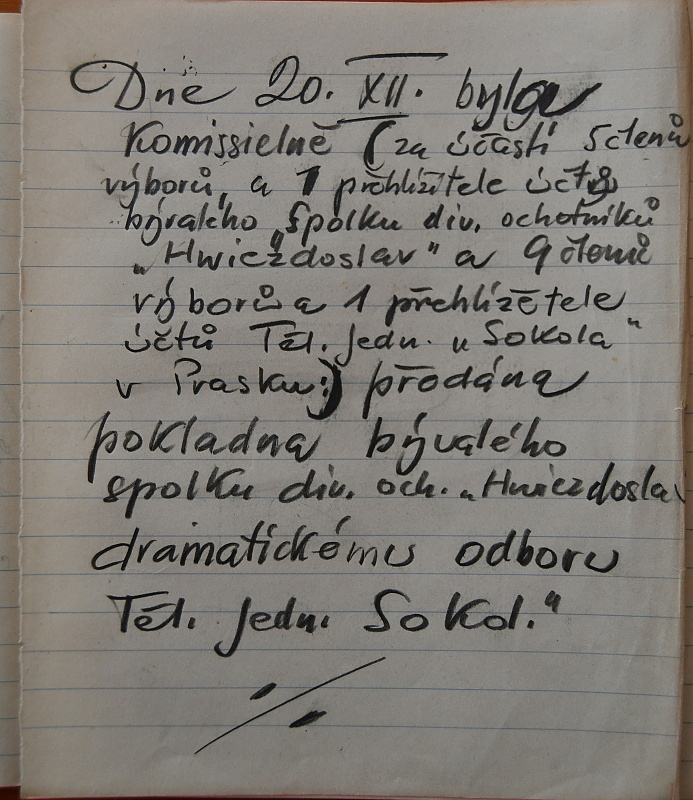 Dne 20. XII. byla
Komissielně (za účasti 5 členů
výborů, a 1 přehlížitele účtů
bývalého „Spolku div. ochotníků
„Hwiezdoslav" a 9 členů
výborů a 1 přehlížětele
účtů Těl. Jedn. „Sokola"
v Prasku:) přodána
pokladna bývalého
spolku div. och. „Hwiezdoslav
dramatickému odboru
Těl. Jedn. Sokol."